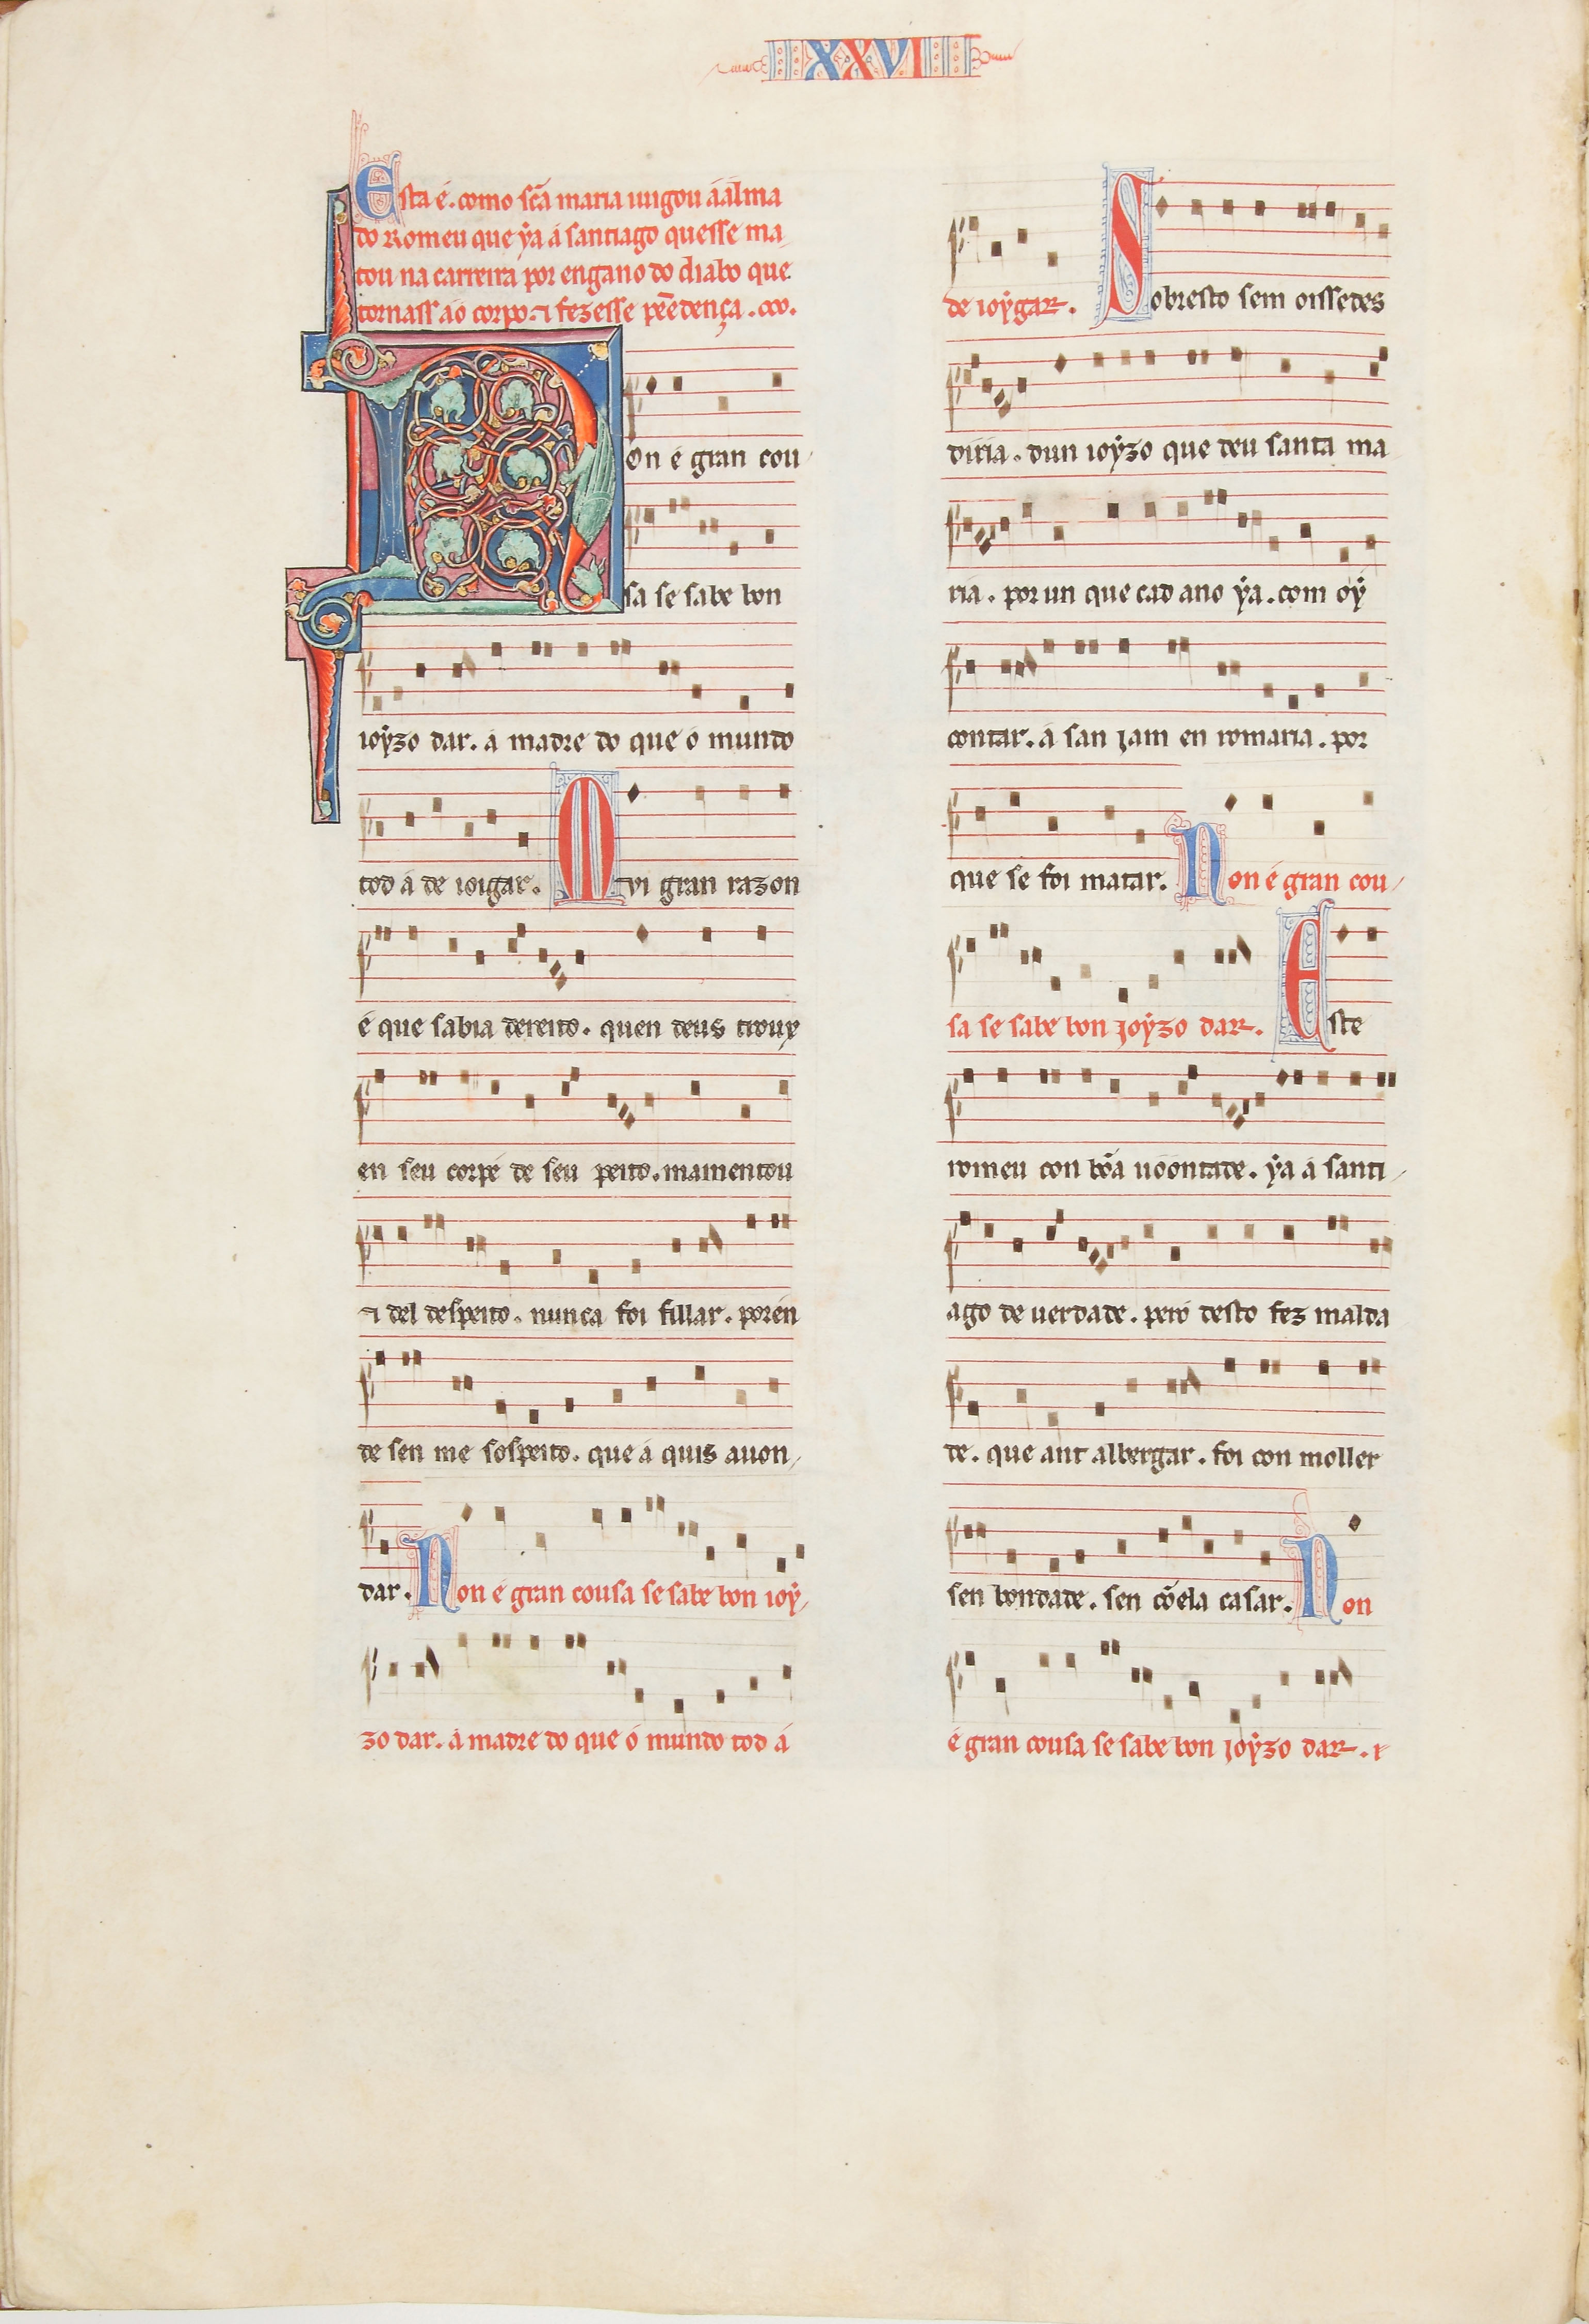 XXVI
Esta é. como scã maria iuigou áálma
do Romeu que ẏa á santiago quesse ma
tou na carreira por engano do diabo que
tornass áó corpo. ⁊ fezesse pẽedença.
Non é gran cou
sa se sabe bon
ioẏzo dar. á madre do que ó mundo
tod á de ioigar. Mui gran razon
é que sabia dereito. quen deus troux
en seu corpe de seu peito. mamentou
⁊ del despeito. nunca foi fillar. porén
de sen me sospeito. que á quis auon
dar. Non é gran cousa se sabe bon ioẏ
zo dar. á madre do que ó mundo tod á
de ioẏgar. Sobresto sem oissedes
diria. dun ioẏzo que deu santa ma
ria. por un que cad ano ẏa. com oẏ
contar. á san jam en romaria. por
que se foi matar. Non é gran cou
sa se sabe bon joẏzo dar. Este
romeu con bõa uóóntade. ẏa á santi
ago de uerdade. peró desto fez malda
de. que ant albergar. foi con moller
sen bondade. sen cõela casar. Non
é gran cousa se sabe bon joẏzo dar.